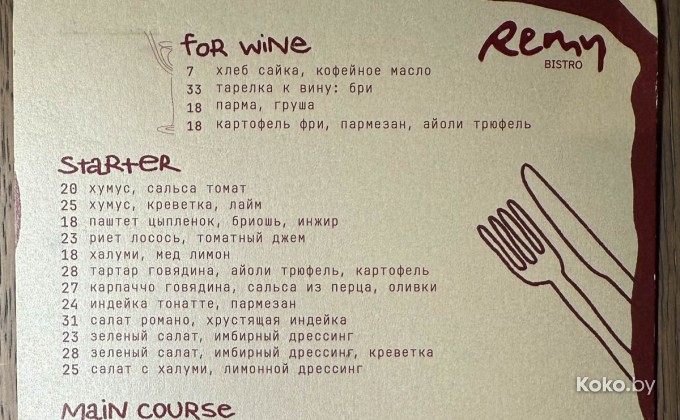 for wine
Remy
BISTRO
7 хлеб сайка, кофейное масло
33 тарелка к вину: бри
18 парма, груша
18 картофель фри, пармезан, айоли трюфель
starter
20 хумус, сальса томат
25 хумус, креветка, лайм
18 паштет цыпленок, бриошь, инжир
23 риет лосось, томатный джем
18 халуми, мед лимон
28 тартар говядина, айоли трюфель, картофель
27 карпаччо говядина, сальса из перца, оливки
24 индейка тонатте, пармезан
31 салат романо, хрустящая индейка
23 зеленый салат, имбирный дрессинг
28 зеленый салат, имбирный дрессинг, креветка
25 салат с халуми, лимонной дрессинг
main course
Koko.by